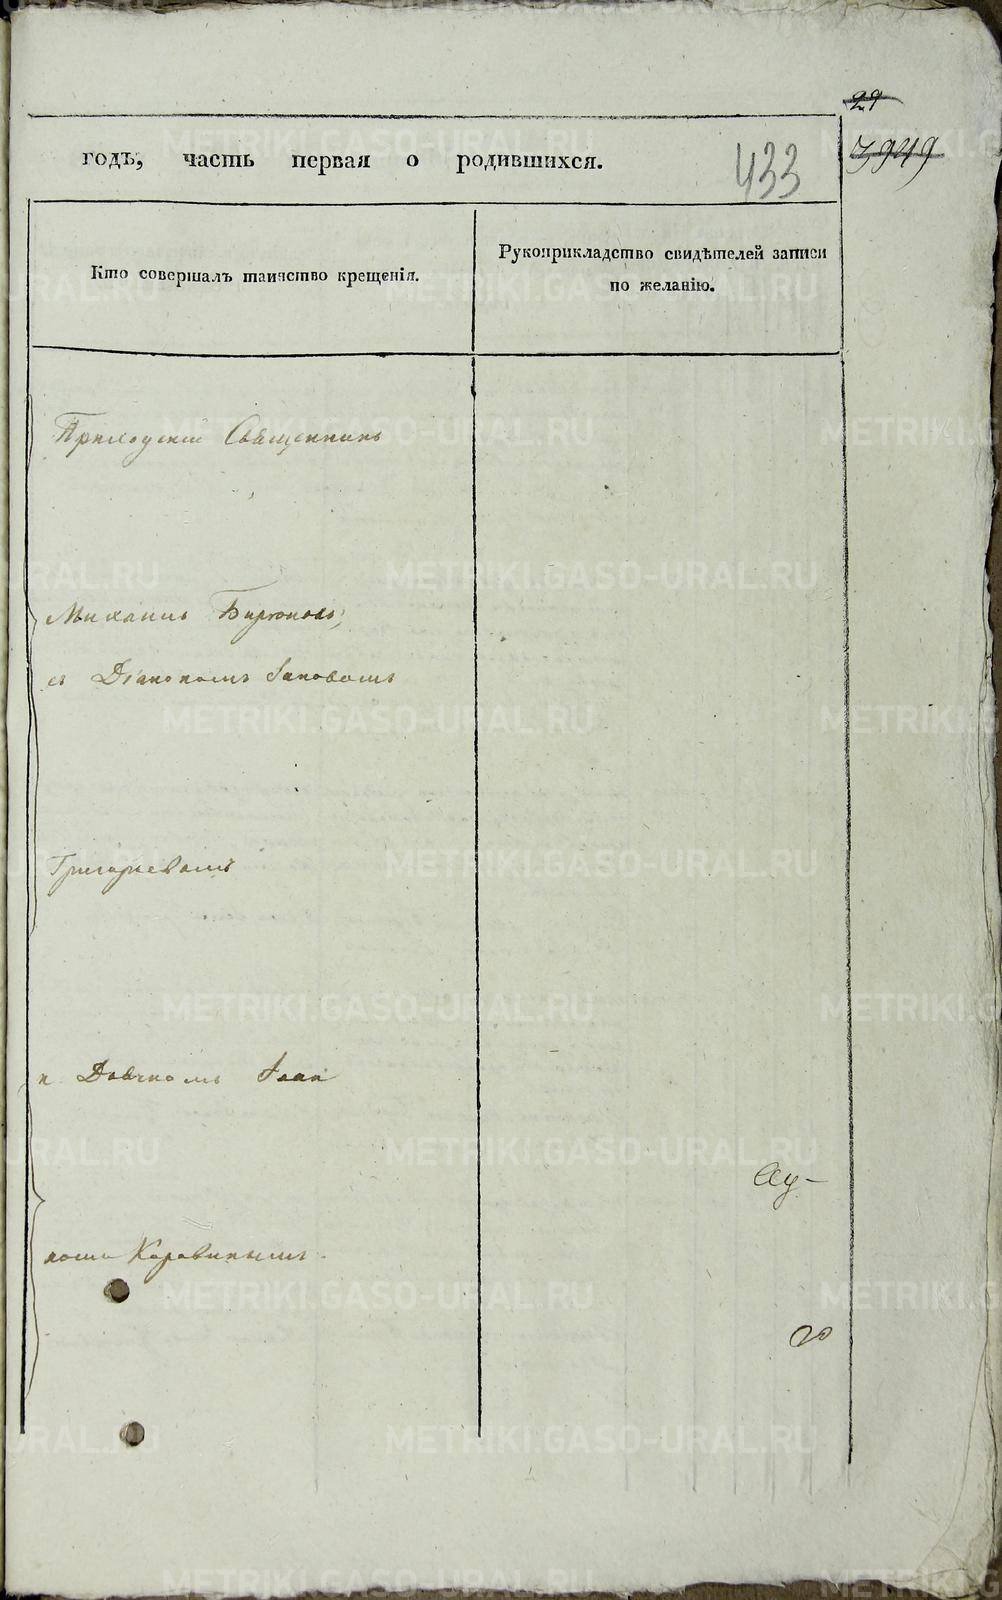 29
7949
433
годъ, часть первая о родившихся.
Кто совершалъ таинство крещенія.
Рукоприкладство свидѣтелей записи
по желанію.
Приходскій Священникъ
Михаилъ Бирюковъ,
съ Діакономъ Іаковомъ
Григорьевымъ
и Дьячкомъ Іоан
номъ Коровинымъ.
METRIKI.GASO-URAL.RU